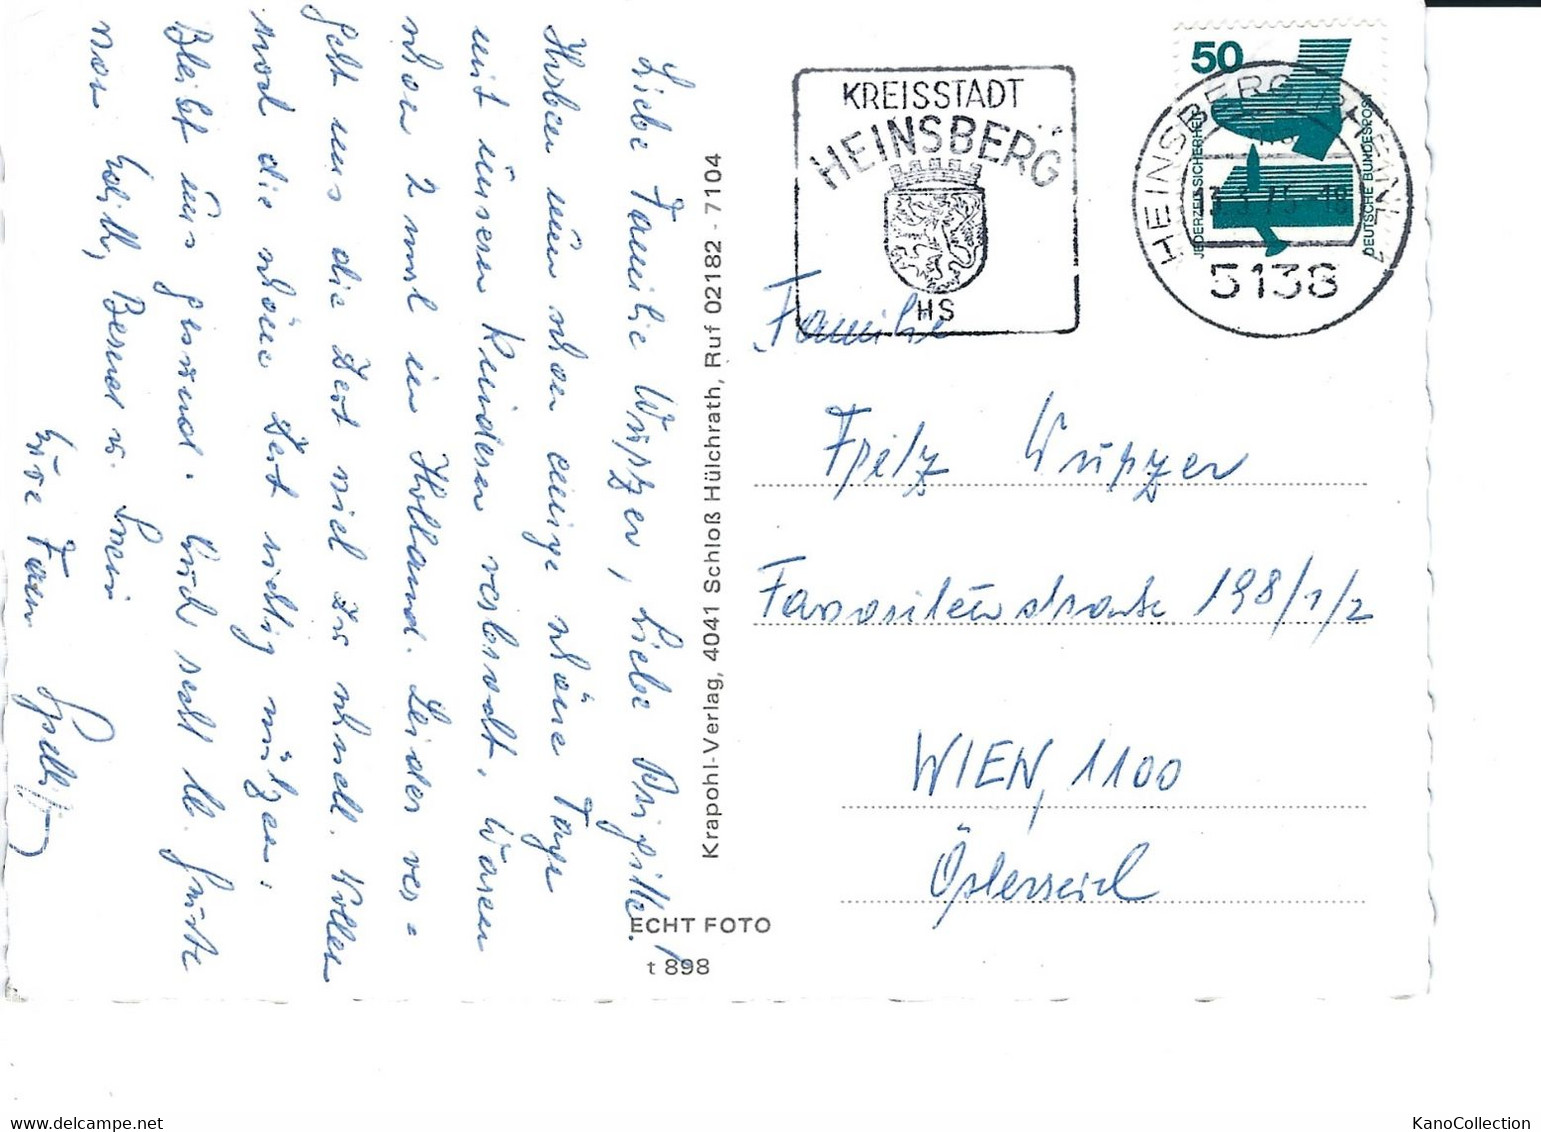 Liebe Familie Wupzer, Liebe Brigitte!
Haben nun schon einige schöne Tage
mit unseren Kindern verbracht. Waren
schon 2 mal in Holland. Leider ver=
geht uns die Zeit viel zu schnell. Wollen
noch die schöne Zeit richtig nützen.
Bleibt uns gesund. Euch recht lb. Grüße
von Edith, Bernd u.
Eure Fam.
Krapohl-Verlag, 4041 Schloß Hülchrath, Ruf 02182 - 7104
ECHT FOTO
t 898
KREISSTADT
HEINSBERG
HS
50
JEDERZEIT SICHERHEIT
DEUTSCHE BUNDESPOST
HEINSBERG, RHEINL 1
13.3.75-18
5138
Familie
Fritz Wupzer
Favoritenstraße 198/1/2
WIEN, 1100
Österreich
KanoCollection